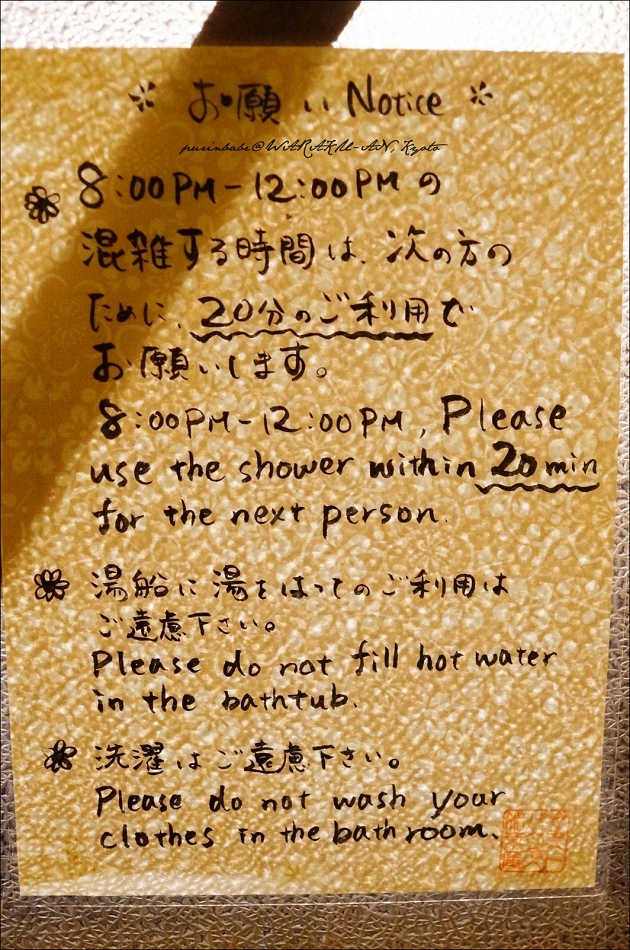 お願い Notice
purinbabe@WARAKU-AN, Kyoto
8:00PM-12:00PMの
混雑する時間は、次の方の
ために、20分のご利用で
お願いします。
8:00PM-12:00PM, Please
use the shower within 20min
for the next person.
湯船に湯をはってのご利用は
ご遠慮下さい。
Please do not fill hot water
in the bathtub.
洗濯はご遠慮下さい。
Please do not wash your
clothes in the bathroom.